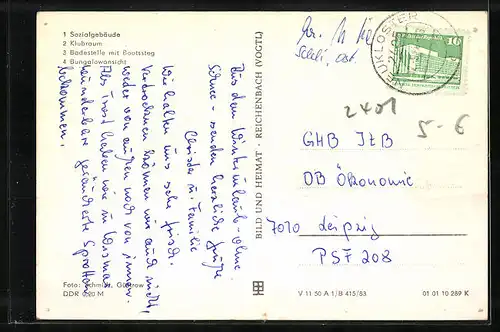 1 Sozialgebäude
2 Klubraum
3 Badestelle mit Bootssteg
4 Bungalowansicht
Aus dem Winterurlaub - ohne
Schnee - senden herzliche Grüße
Christa u. Familie
Wir halten uns sehr frisch.
Vertrocknen können wir auch nicht,
weder von außen noch von innen.
Als Trost haben wir in Wismar
wunderbare geräucherte Sprotten
bekommen.
Foto: Schmidt, Güstrow
DDR 0,20 M
BILD UND HEIMAT · REICHENBACH (VOGTL)
V 11 50 A 1/B 415/83
01 01 10 289 K
NEUKLOSTER
10
2401
5-6
GHB ItB
OB Ökonomie
7010 Leipzig
PSF 208